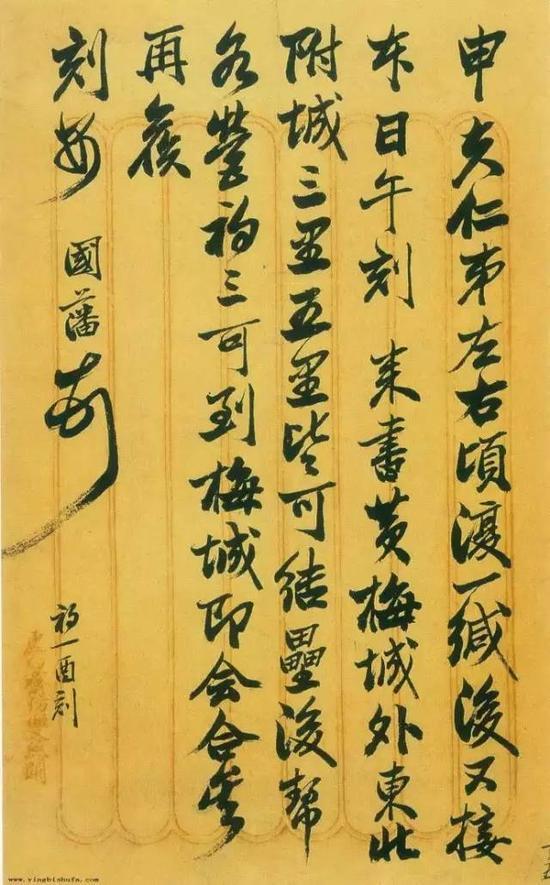 申夫仁弟左右頃復一緘後又接
本日午刻 來書黃梅城外東北
附城三里五里皆可結壘後幫
各營初三可到梅城即會合矣
再復
刻安 國藩
初一酉刻
www.yingbishufa.com